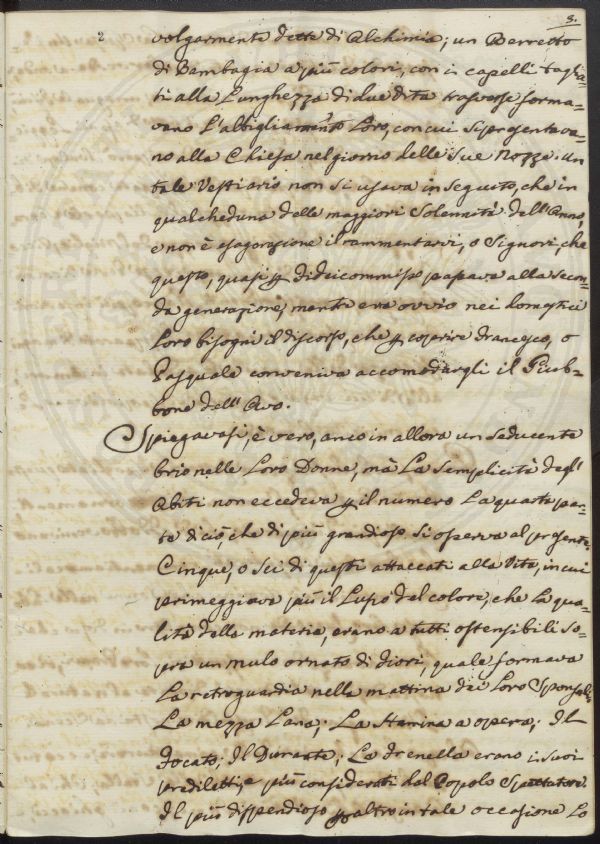 3.
2
volgarmente dette di Alchimia; un Berretto
di Bambagia a più colori, con i capelli taglia=
ti alla Lunghezza di due dita trasverse forma=
vano L'abbigliamento Loro, con cui si presentava=
no alla Chiesa nel giorno delle Sue Nozze. Un
tale Vestiario non si usava in seguito, che in
qualcheduna delle maggiori Solennità dell'Anno,
e non è esagerazione il rammentarvi, o Signori, che
questo, quasi p fideicommisso passava alla secon=
da generazione, mentre era ovvio nei domestici
Loro bisogni il discorso, che p coprire Francesco, o
Pasquale conveniva accomodargli il Giub=
bone dell'Avo.
Spiegavasi, è vero, anco in allora un seducente
brio nelle Loro Donne, mà La semplicità degl'
Abiti non eccedeva p il numero La quarta par=
te di ciò, che di più grandioso si osserva al presente.
Cinque, o sei di questi attaccati alla Vita, in cui
primeggiava più il Lusso del colore, che La qua=
lità della materia, erano a tutti ostensibili so=
pra un mulo ornato di fiori, quale formava
La retroguardia nella mattina dei Loro Sponsali.
La mezza Lana; La Stamina a opera; Il
Docato; Il Durante; La Frenella erano i suoi
prediletti, e più considerati dal Popolo Spettatore.
Il più dispendioso p altro in tale occasione Lo